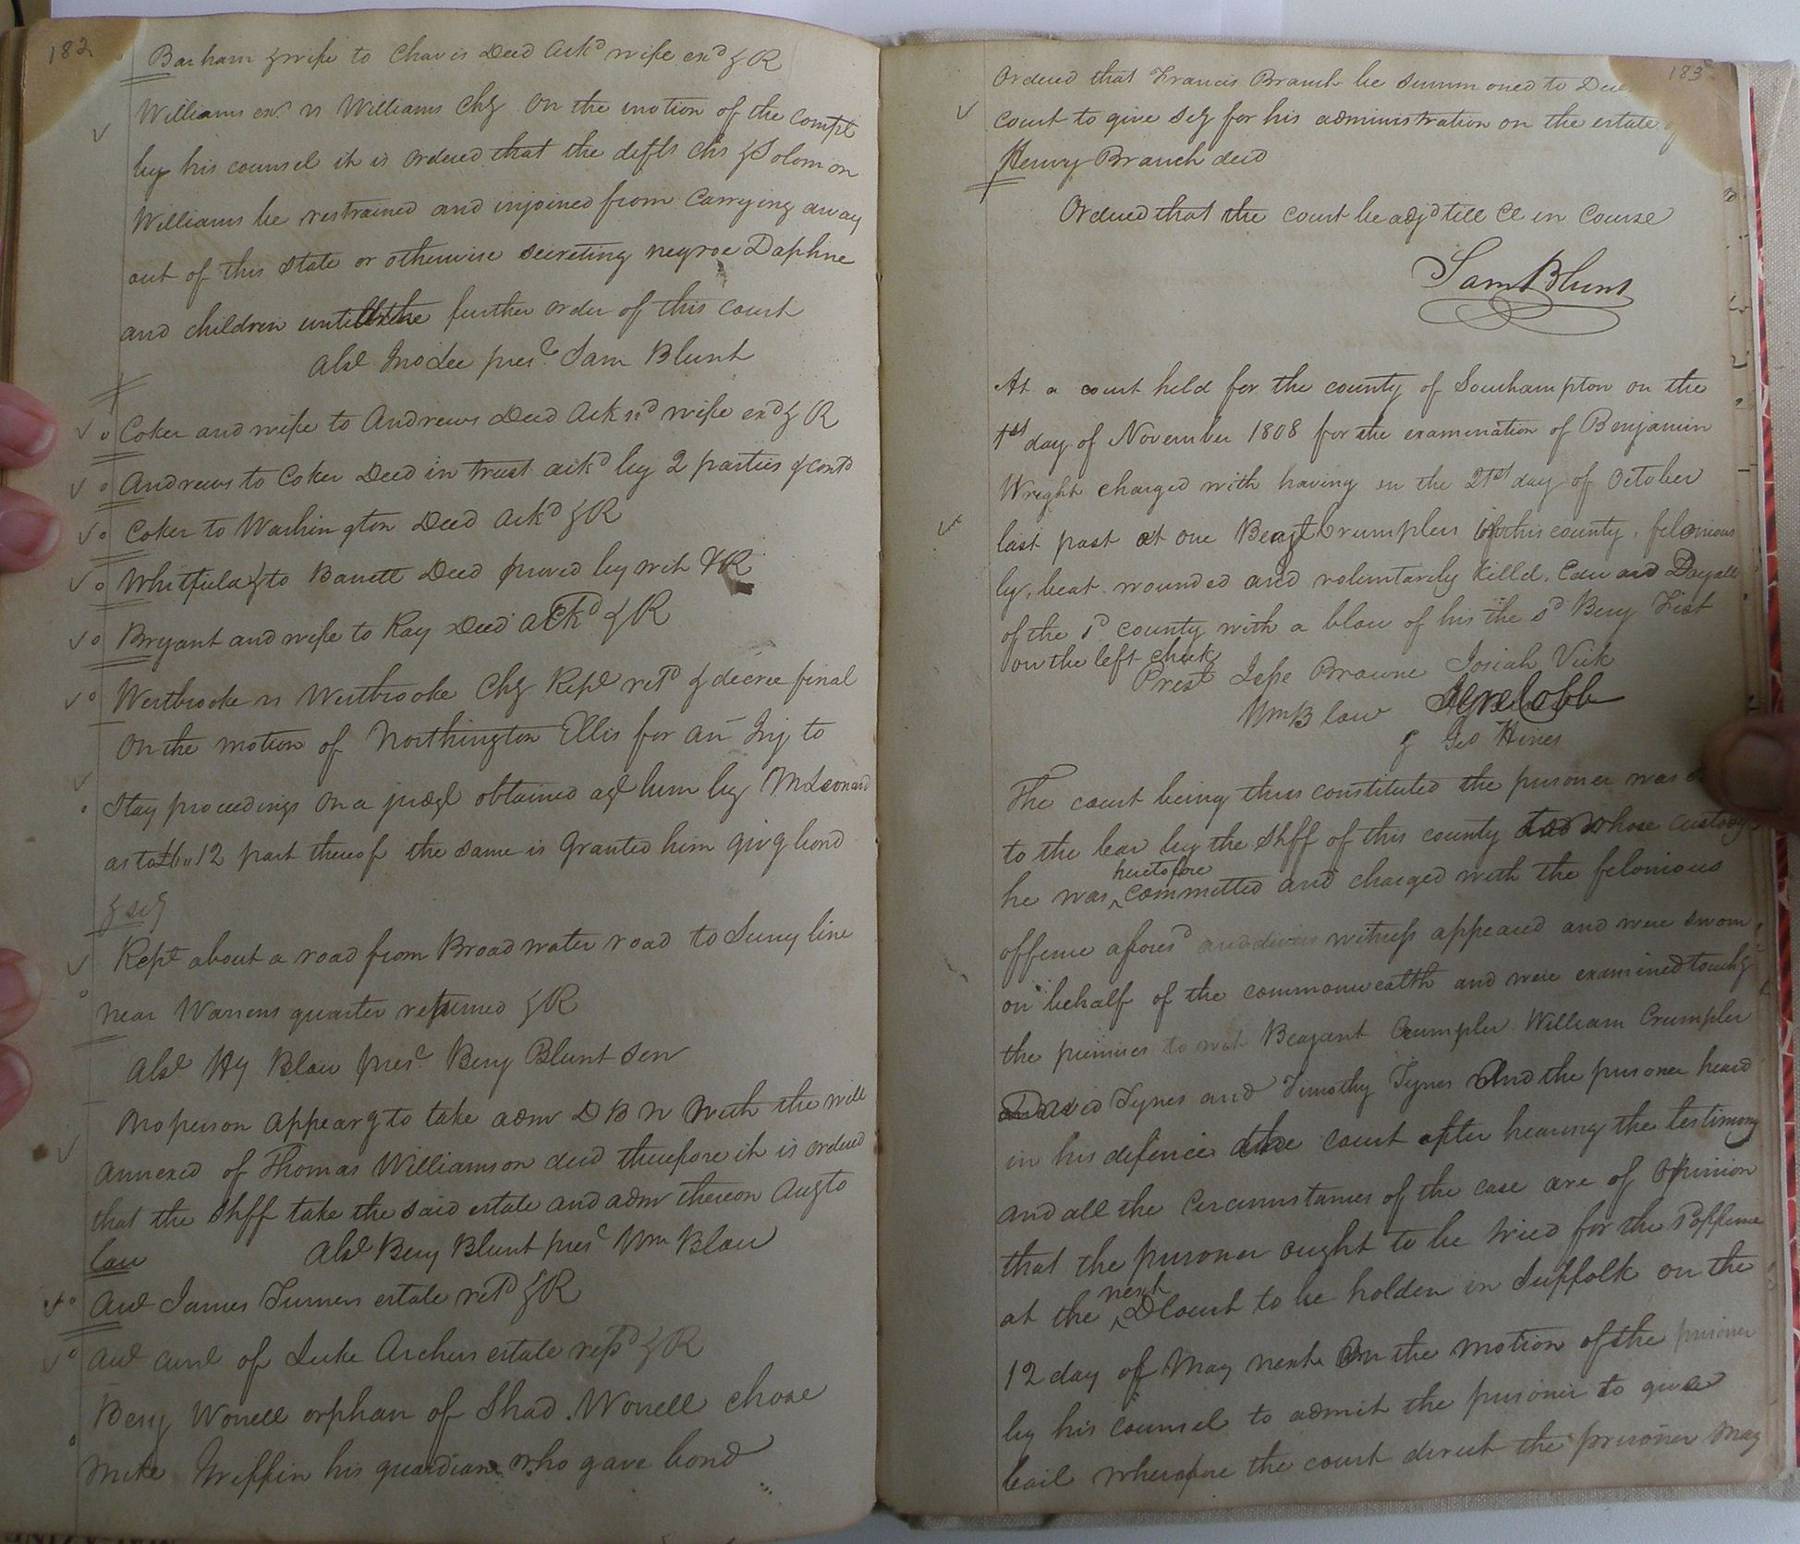 182
Barham & wife to Chavis Deed Ackd wife exd & R
Williams exr vs Williams Chy On the motion of the Complt
by his counsel it is ordered that the defts Chs & Solomon
Williams be restrained and injoined from carrying away
out of this state or otherwise secreting negroe Daphne
and children untill the further order of this court
Abst Jno Lee prest Sam Blunt
Coker and wife to Andrews Deed Acknd wife exd & R
Andrews to Coker Deed in trust ackd by 2 parties & contd
Coker to Washington Deed Ackd & R
Whitfield & to Barrett Deed proved by wit & R
Bryant and wife to Kay Deed ackd & R
Westbrooke vs Westbrooke Chy Rept retd & decree final
On the motion of Northington Ellis for an Inj to
stay proceedings on a judgt obtained agt him by M Leonard
as to 12 part thereof the same is Granted him givg bond
& scy
Rept about a road from Broad water road to Surry line
near Warrens quarter returned & R
Abst Hy Blow prest Benj Blunt Senr
No person appearg to take adm D B N with the will
annexed of Thomas Williamson decd therefore it is ordered
that the Shff take the said estate and adm thereon Acg to
law Abst Benj Blunt prest Wm Blow
Aud James Turners estate retd & R
Aud Curt of Luke Archers estate retd & R
Benj Worrell orphan of Shad. Worrell chose
Mike Griffin his guardian who gave bond
183
Ordered that Francis Branch be summoned to Dec
court to give scy for his administration on the estate of
Henry Branch decd
Ordered that the court be adjd till Ct in Course
Sam Blunt
At a court held for the county of Southampton on the
1st day of November 1808 for the examination of Benjamin
Wright charged with having on the 21st day of October
last past at one Beazt Crumplers in this county, felonious
ly, beat wounded and voluntarily killd. Edward Dayall
of the sd county with a blow of his the sd Benj Fist
on the left cheek
Prest Jesse Browne Josiah Vick
Wm Blow Cobb
& Geo Hines
The court being thus constituted the prisoner was
to the bar by the Shff of this county to whose custody
he was heretofore committed and charged with the felonious
offence aforesd and divers witness appeared and were sworn
on behalf of the commonwealth and were examined touchg
the premises to wit Beazant Crumpler William Crumpler
David Tynes and Timothy Tynes And the prisoner heard
in his defence the court after hearing the testimony
and all the Circumstances of the case are of Opinion
that the prisoner ought to be tried for the sd offence
at the next D Court to be holden in Suffolk on the
12 day of May next On the motion of the prisoner
by his counsel to admit the prisoner to give
bail wherefore the court direct the prisoner may